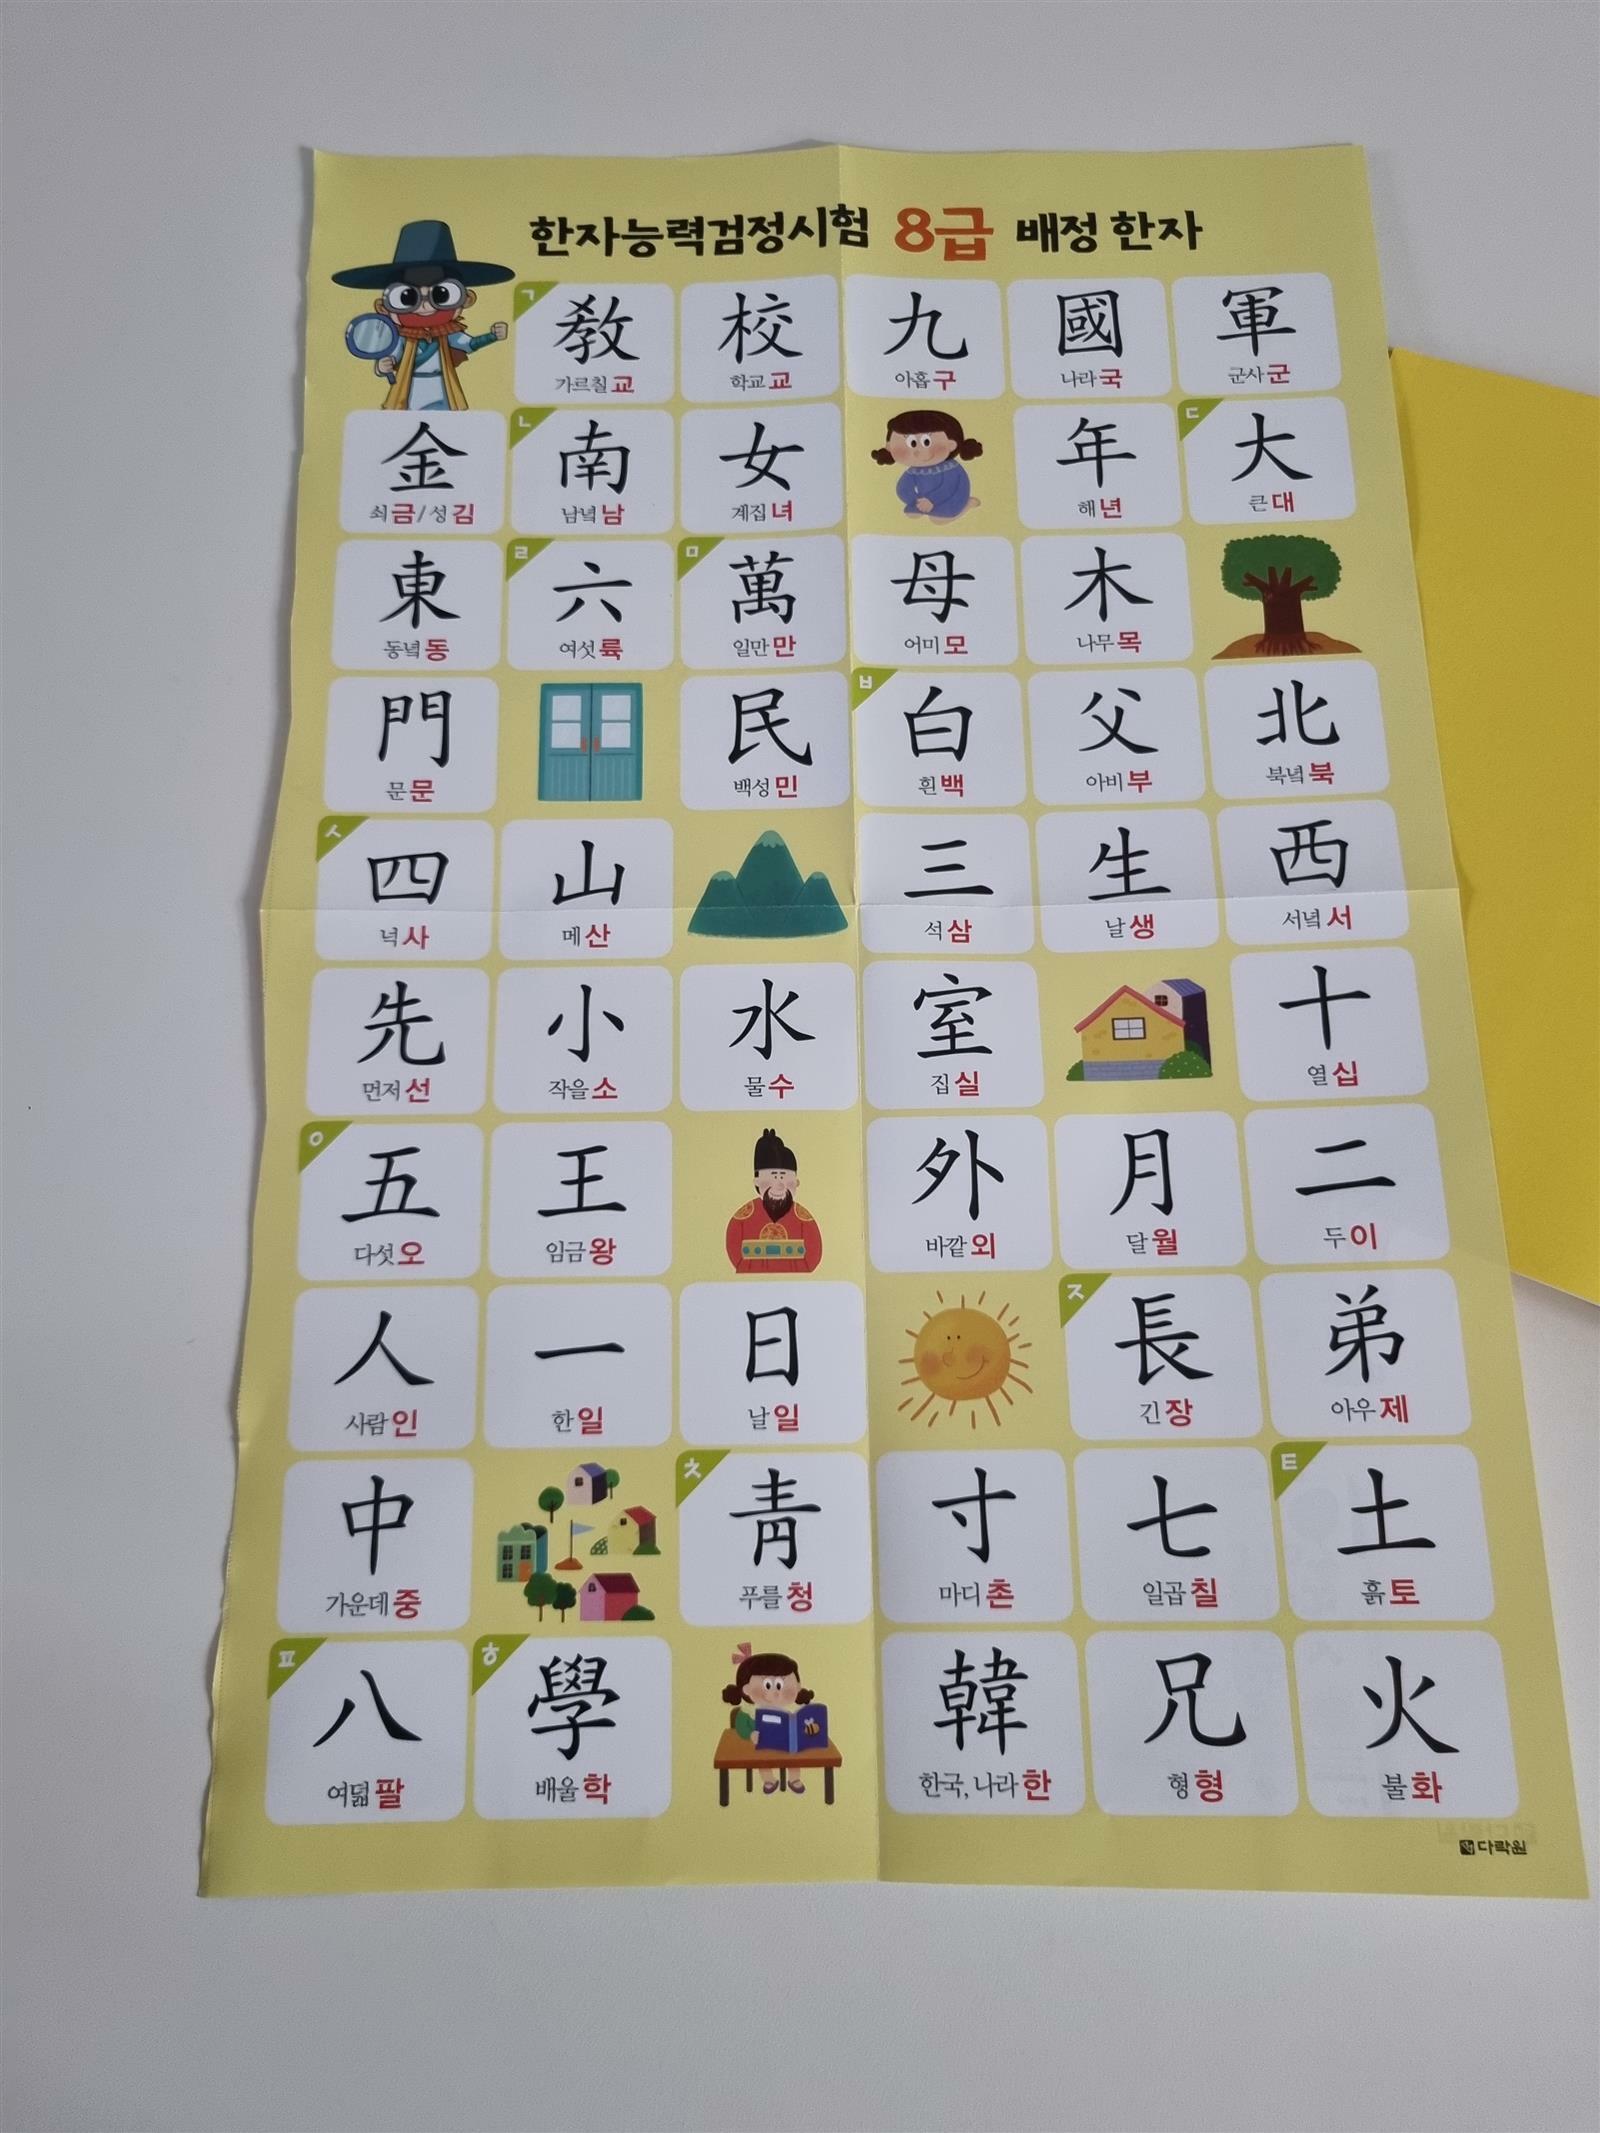 한자능력검정시험 8급 배정 한자
ㄱ
教 校 九 國 軍
가르칠 교 학교 교 아홉 구 나라 국 군사 군
ㄴ ㄷ
金 南 女 年 大
쇠 금/성 김 남녘 남 계집 녀 해 년 큰 대
ㄹ ㅁ
東 六 萬 母 木
동녘 동 여섯 륙 일만 만 어미 모 나무 목
ㅂ
門 民 白 父 北
문 문 백성 민 흰 백 아비 부 북녘 북
ㅅ
四 山 三 生 西
넉 사 메 산 석 삼 날 생 서녘 서
先 小 水 室 十
먼저 선 작을 소 물 수 집 실 열 십
ㅇ
五 王 外 月 二
다섯 오 임금 왕 바깥 외 달 월 두 이
ㅈ
人 一 日 長 弟
사람 인 한 일 날 일 긴 장 아우 제
ㅊ ㅌ
中 靑 寸 七 土
가운데 중 푸를 청 마디 촌 일곱 칠 흙 토
ㅍ ㅎ
八 學 韓 兄 火
여덟 팔 배울 학 한국, 나라 한 형 형 불 화
다락원